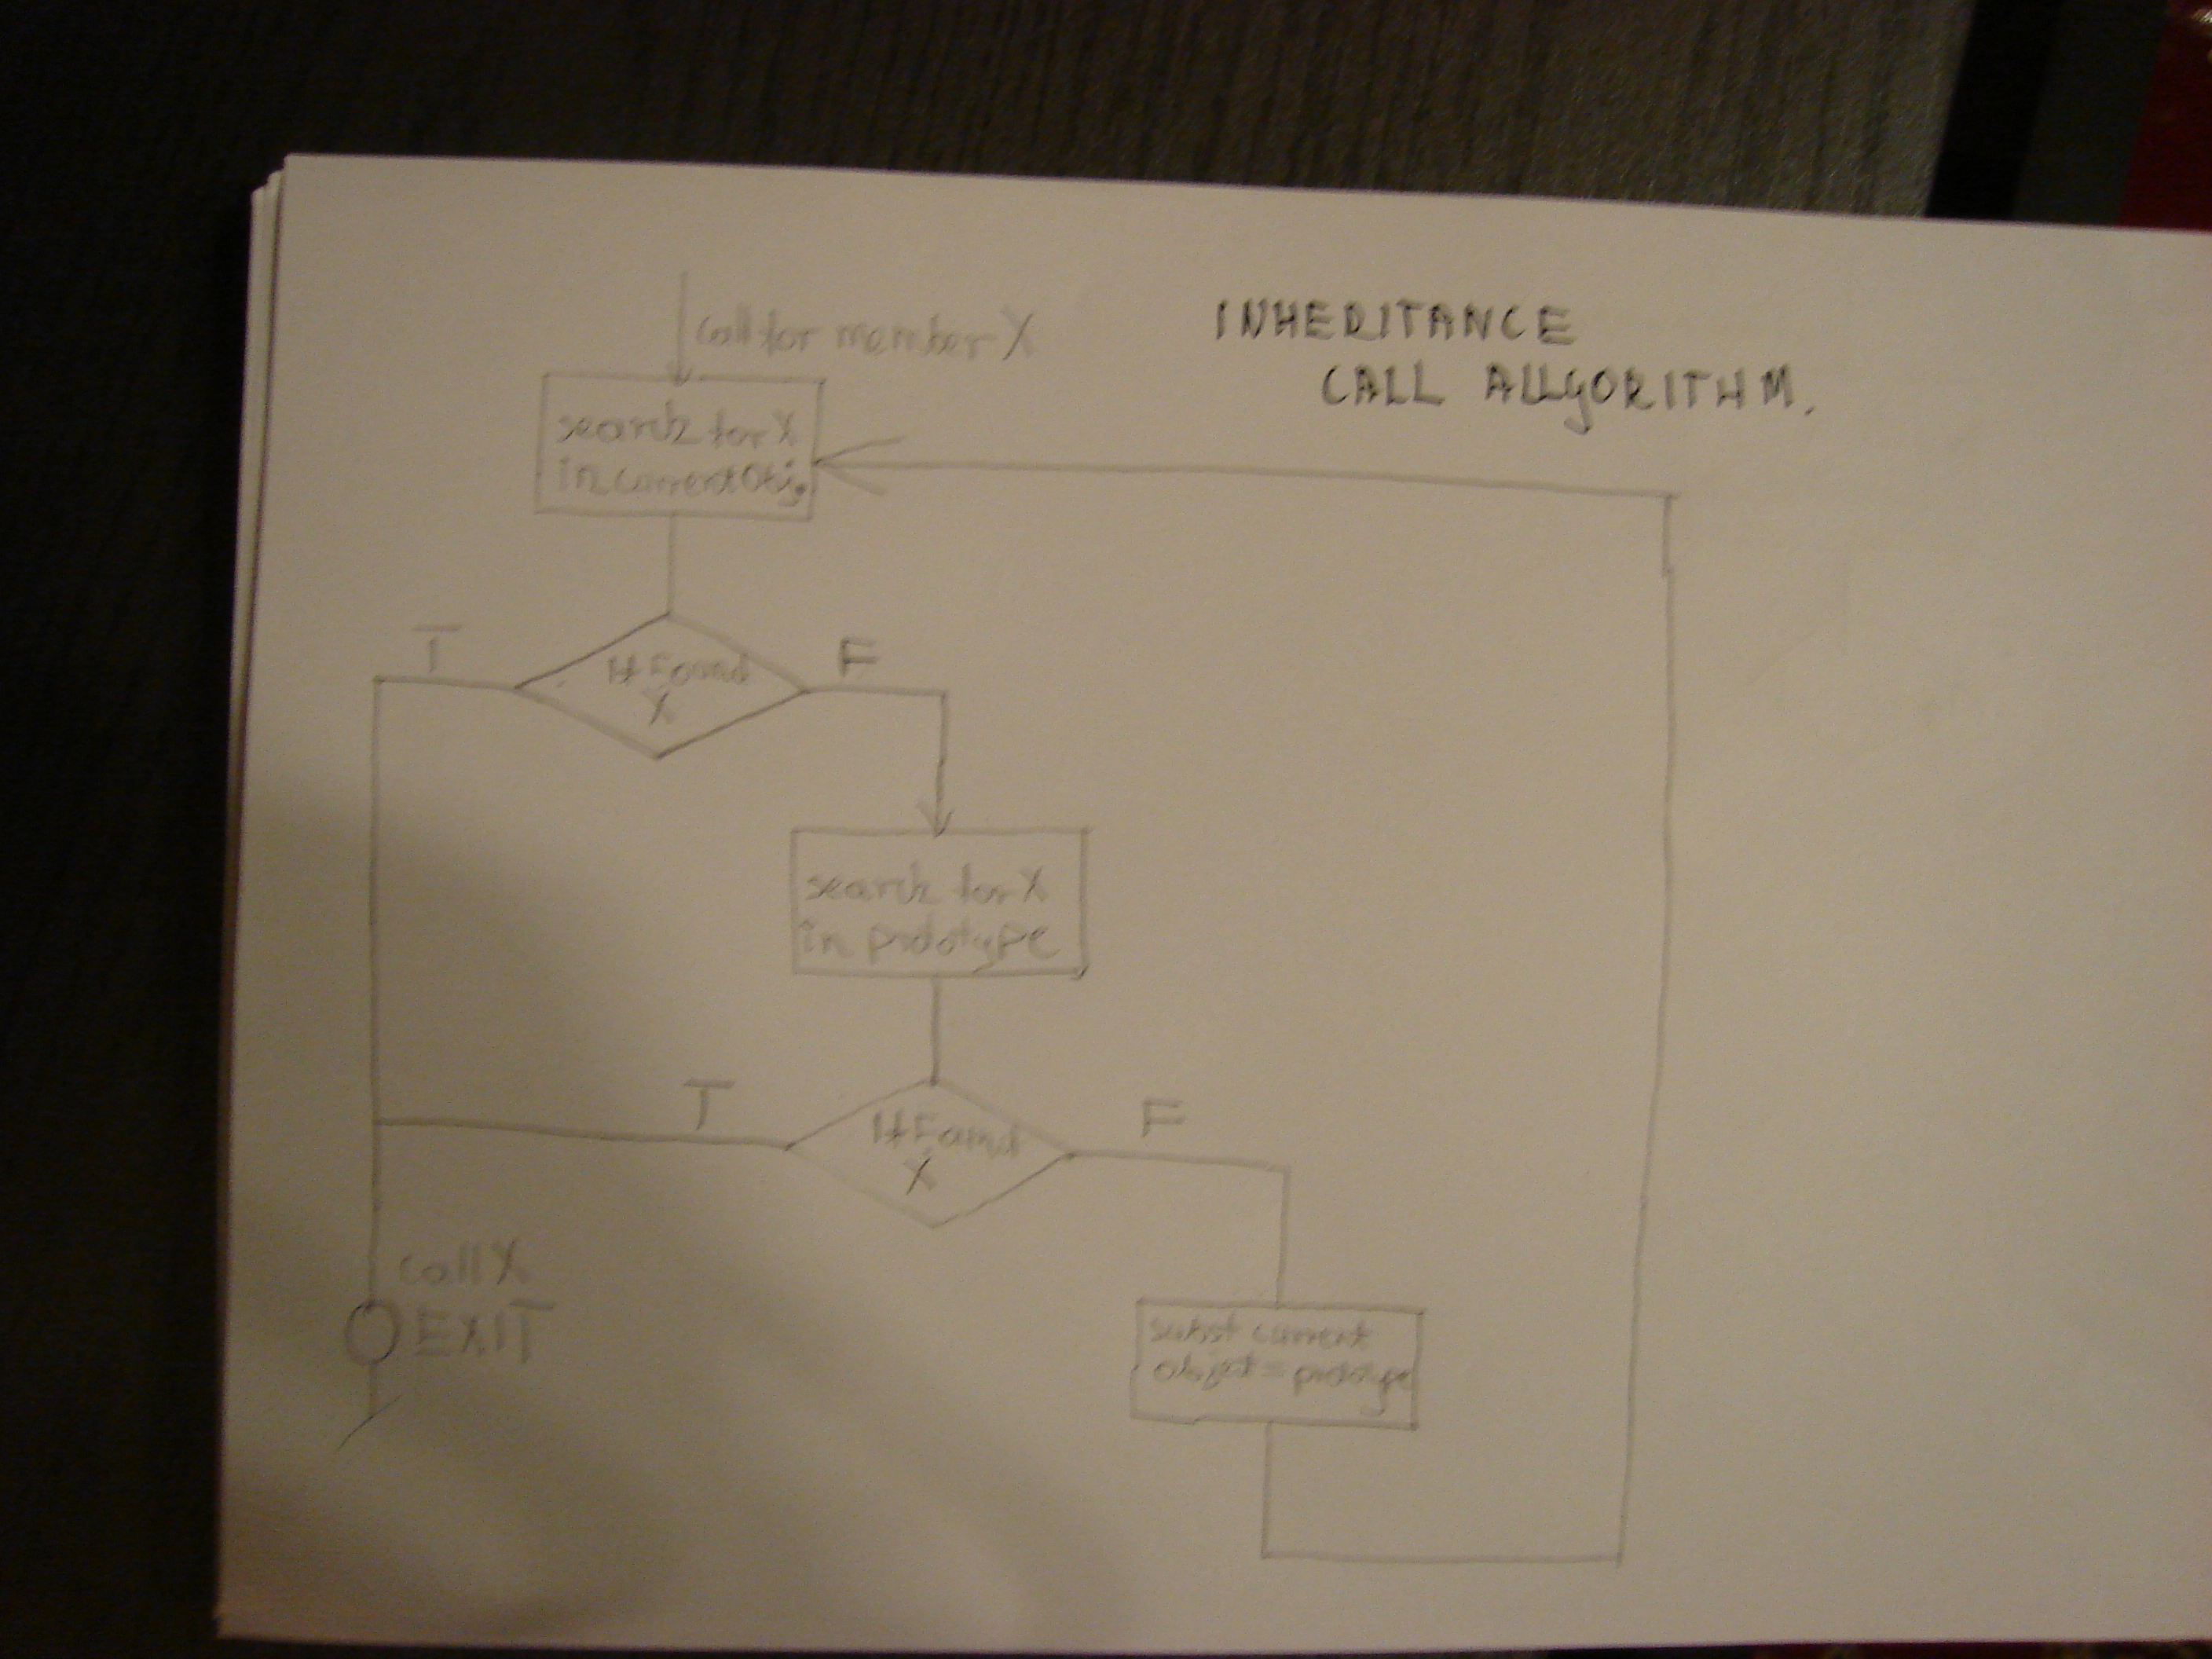 INHERITANCE
CALL ALLGORITHM.
call for member X
search for X
in currentObj
T
F
If Found
X
search for X
in prototype
T
F
If Found
X
call X
EXIT
subst current
object = prototype